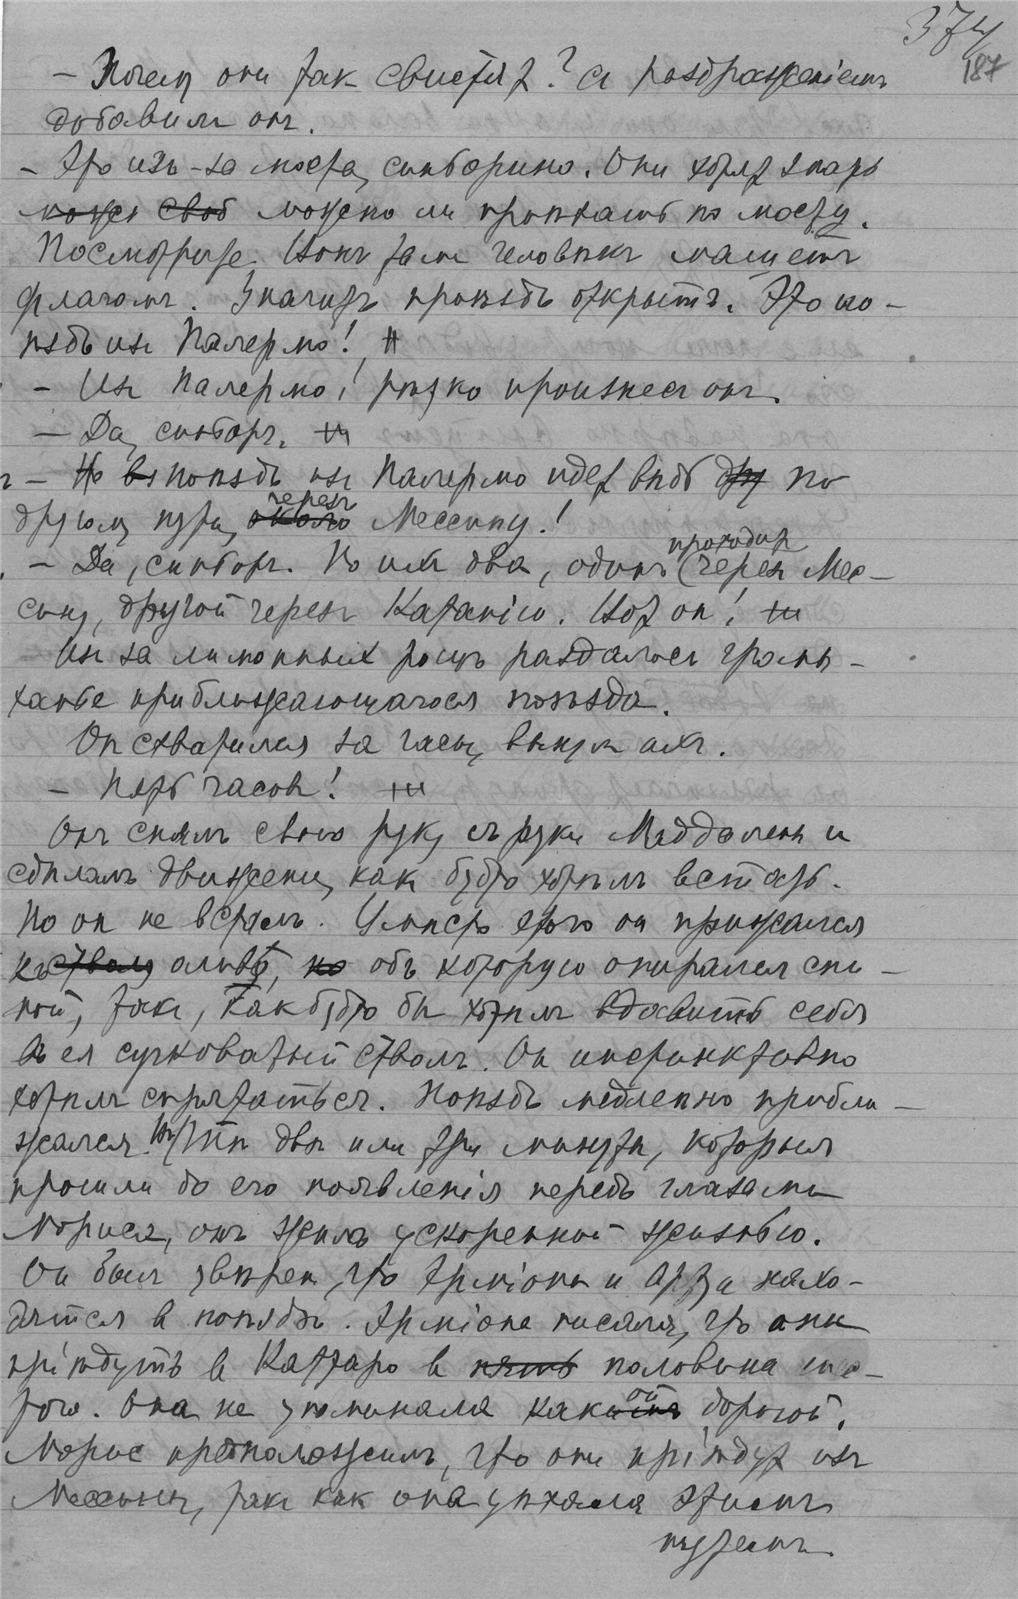 374
187
— Почему они так свистят? съ раздраженiемъ
добавилъ онъ.
— Это изъ-за моста, синьорино. Они хотятъ знать
можн своб можно ли проѣхать по мосту.
Посмотрите. Вонъ тамъ человѣкъ машетъ
флагомъ. Значитъ проѣздъ открытъ. Это по-
ѣздъ изъ Палермо!
— Изъ Палермо! рѣзко произнесъ онъ.
— Да, синьоръ.
— Но въ поѣздъ изъ Палермо идетъ вѣдь др по
другому пути, около черезъ Мессину!
— Да, синьоръ. Но ихъ два, одинъ проходитъ черезъ Мес-
сину, другой черезъ Катанiю. Вотъ он!
Изъ за лимонныхъ рощъ раздалось громы-
ханье приближающагося поѣзда.
Он схватился за часы, вынулъ ихъ.
— Пять часовъ!
Онъ снялъ свою руку съ руки Маддалены и
сдѣлалъ движение, как будто хотѣлъ встать.
Но он не всталъ. Вмѣсто этого он прижался
къ стволу оливѣ, но объ которую опирался спи-
ной, такъ, как будто бы хотѣлъ вдавить себя
въ ея сучковатый стволъ. Он инстинктивно
хотѣлъ спрятаться. Поѣздъ медленно прибли-
жался. Въ тѣ двѣ или три минуты, которыя
прошли до его появленiя передъ глазами
Мориса, онъ жилъ ускоренной жизнью.
Он былъ увѣрен, что Эрмiона и Артуа нахо-
дятся в поѣздѣ. Эрмiона писала, что они
прiѣдутъ в Каттаро в пять половина ше-
стого. Она не упоминала какимъ ой дорогой.
Морис предположилъ, что они прiѣдут изъ
Мессины, такъ как она уѣхала этимъ
путемъ